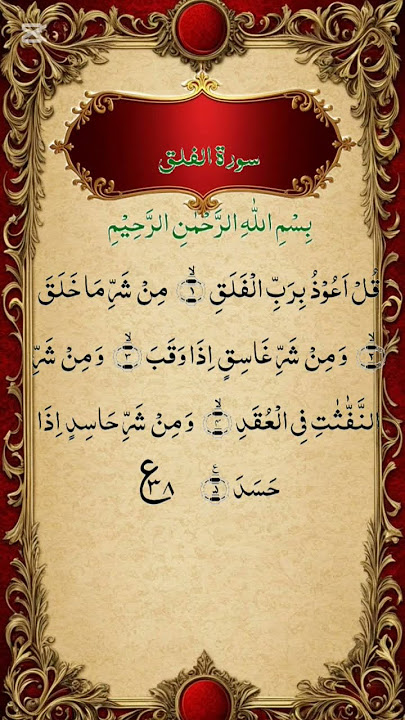 سورة الفلق
بِسْمِ اللهِ الرَّحْمٰنِ الرَّحِيْمِ
قُلْ اَعُوْذُ بِرَبِّ الْفَلَقِ ۙ﴿۱﴾ مِنْ شَرِّ مَا خَلَقَ
ۙ﴿۲﴾ وَ مِنْ شَرِّ غَاسِقٍ اِذَا وَقَبَ ۙ﴿۳﴾ وَ مِنْ شَرِّ
النَّفّٰثٰتِ فِی الْعُقَدِ ۙ﴿۴﴾ وَ مِنْ شَرِّ حَاسِدٍ اِذَا
حَسَدَ ﴿۵﴾ ع ۳۸